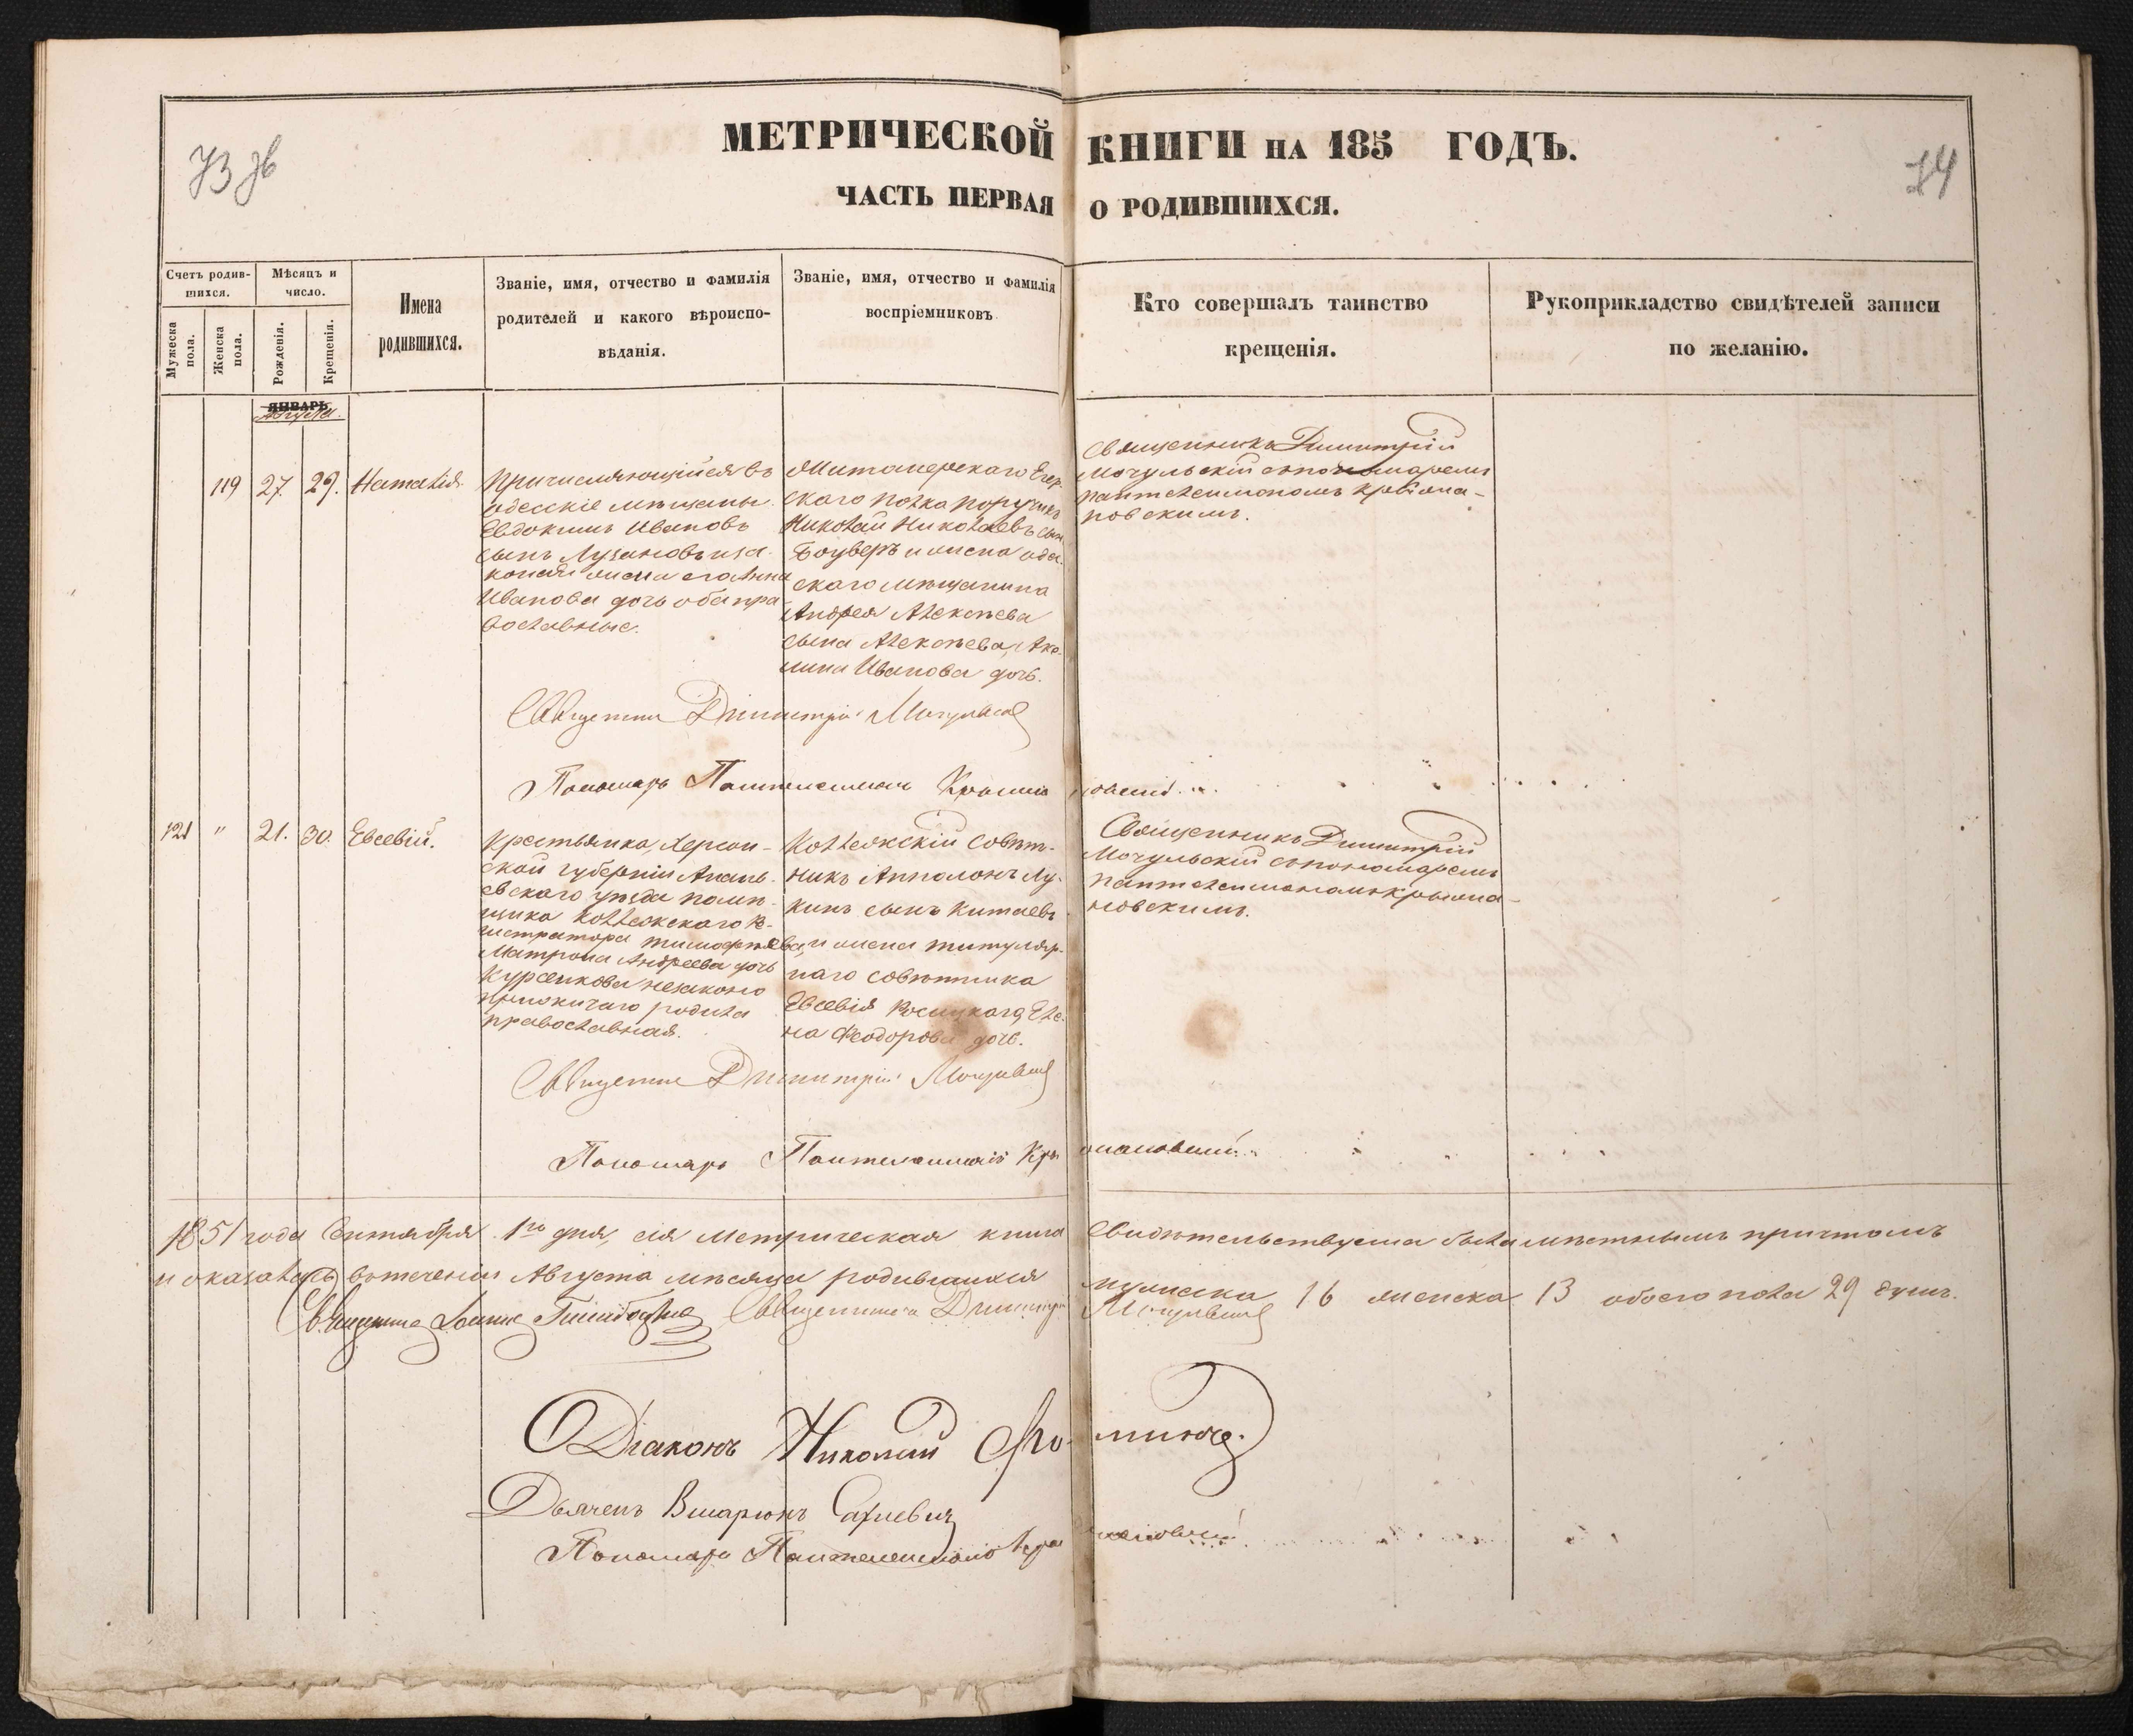 73 об
74
МЕТРИЧЕСКОЙ КНИГИ НА 185 ГОДЪ.
ЧАСТЬ ПЕРВАЯ О РОДИВШИХСЯ.
Счетъ родив-
шихся.
Мѣсяцъ и
число.
Мужеска
пола.
Женска
пола.
Рожденія.
Крещенія.
Имена
родившихся.
Званіе, имя, отчество и фамилія
родителей и какого вѣроиспо-
вѣданія.
Званіе, имя, отчество и фамилія
воспріемниковъ
Кто совершалъ таинство
крещенія.
Рукоприкладство свидѣтелей записи
по желанію.
ЯНВАРЬ
Августа.
119 27. 29. Наталія
Причисляющійся въ
одесскіе мѣщаны
Евдокимъ Ивановъ
сынъ Лузановъ и за-
коная жена его Анна
Иванова дочь оба пра-
вославные.
Житомерскаго Егер-
скаго полка порутчикъ
Николай Николаевъ сынъ
Боуверъ и жена одес-
скаго мѣщанина
Андрея Алексѣева
сына Алексѣева, Аку-
лина Иванова дочь.
Священникъ Димитрій
Мочульскій съ пономаремъ
пантелеимономъ Крыжа-
новскимъ.
Священникъ Димитрій Мочульскій
Пономарь Пантелеимонъ Крыжановскій
121 " 21. 30. Евсевій.
Крестьянка, Херсон-
ской губерніи Анань-
евскаго уѣзда помѣ-
щика Коллежскаго Ре-
гистратора Тимофѣева,
Матрона Андреева дочь
Курсенкова незаконо
прижитаго родила
православная.
Коллежскій совѣт-
никъ Апполонъ Лу-
кинъ сынъ Китаевъ
и жена титуляр-
наго совѣтника
Евсевія Росицкаго, Еле-
на Феодорова дочь.
Священникъ Димитрій
Мочульскій съ пономаремъ
пантелеимономъ крыжа-
новскимъ.
Священникъ Димитрій Мочульскій
Пономарь Пантелеимонъ Крыжановскій
1851 года Сентября 1го дня, сія Метрическая книга свидѣтельствуема была мѣстнымъ причтомъ
и оказалось втеченіи Августа мѣсяца родившихся мужеска 16 женска 13 обоего пола 29 душъ.
Священникъ Димитрій Мочульскій
Діаконъ Николай
Дьячекъ
Пономарь Пантелеимонъ Крыжановскій